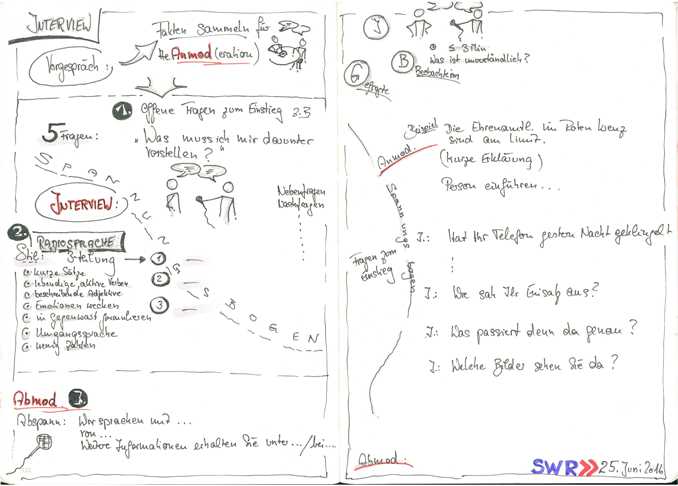 INTERVIEW
Vorgespräch:
Fakten sammeln für
die Anmod(eration)
1. Offene Fragen zum Einstieg z.B
5 Fragen:
"Was muss ich mir darunter
vorstellen?"
SPANNUNGSBOGEN
INTERVIEW:
Nebenfragen
Nachfragen
2. RADIOSPRACHE
Stil:
3-teilung
1
2
3
kurze Sätze
lebendige, aktive Verben
beschreibende Adjektive
Emotionen wecken
in Gegenwart formulieren
Umgangssprache
wenig Zahlen
Abmod 3.
Abspann: Wir sprachen mit ...
von ...
Weitere Informationen erhalten Sie unter .../bei....
J
G efragte
B
Beobachterin
5-8 Min
Was ist unverständlich?
Anmod.
Beispiel Die Ehrenamtl. im Roten Kreuz
sind am Limit.
(kurze Erklärung)
Person einführen...
Spannungsbogen
Fragen zum
Einstieg
J.: Hat Ihr Telefon gestern Nacht geklingelt
J.: Wie sah Ihr Einsatz aus?
J.: Was passiert denn da genau?
J: Welche Bilder sehen Sie da?
Abmod.:
SWR 25. Juni 2016